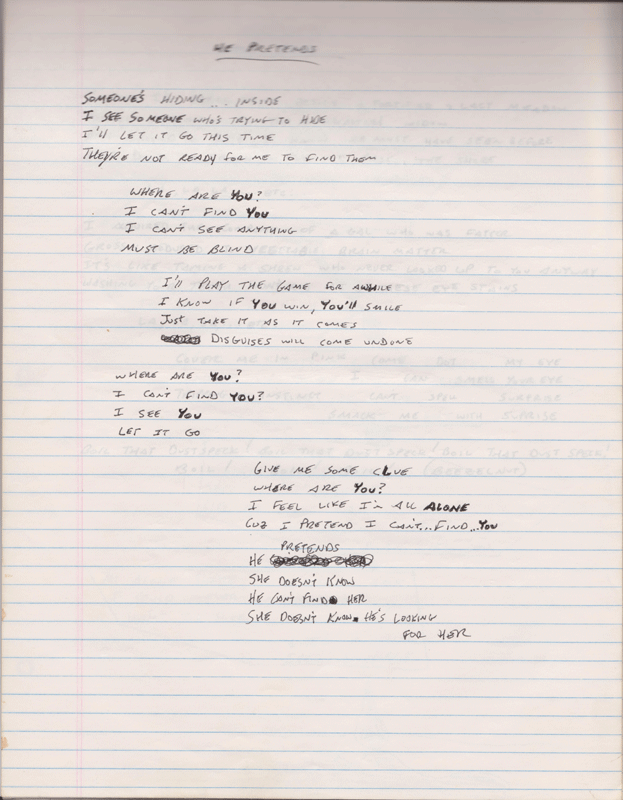 HE PRETENDS
SOMEONE'S HIDING... INSIDE
I SEE SOMEONE WHO'S TRYING TO HIDE
I'll LET IT GO THIS TIME
THEY'RE NOT READY FOR ME TO FIND THEM
WHERE ARE YOU?
I CAN'T FIND YOU
I CAN'T SEE ANYTHING
MUST BE BLIND
I'll PLAY THE GAME FOR AWHILE
I KNOW IF YOU WIN, YOU'll SMILE
JUST TAKE IT AS IT COMES
DISGUISES WILL COME UNDONE
WHERE ARE YOU?
I CAN'T FIND YOU?
I SEE YOU
LET IT GO
GIVE ME SOME CLUE
WHERE ARE YOU?
I FEEL LIKE I'M ALL ALONE
CUZ I PRETEND I CAN'T... FIND... YOU
PRETENDS
HE
SHE DOESN'T KNOW
HE CAN'T FIND HER
SHE DOESN'T KNOW. HE'S LOOKING
FOR HER